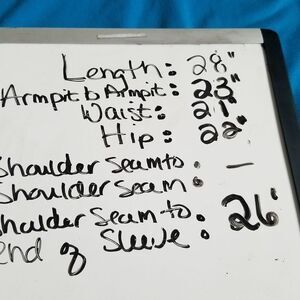 Length: 28"
Armpit to Armpit: 23"
Waist: 21"
Hip: 22"
Shoulder Seam to : —
Shoulder Seam
Shoulder Seam to : 26"
end of Sleeve